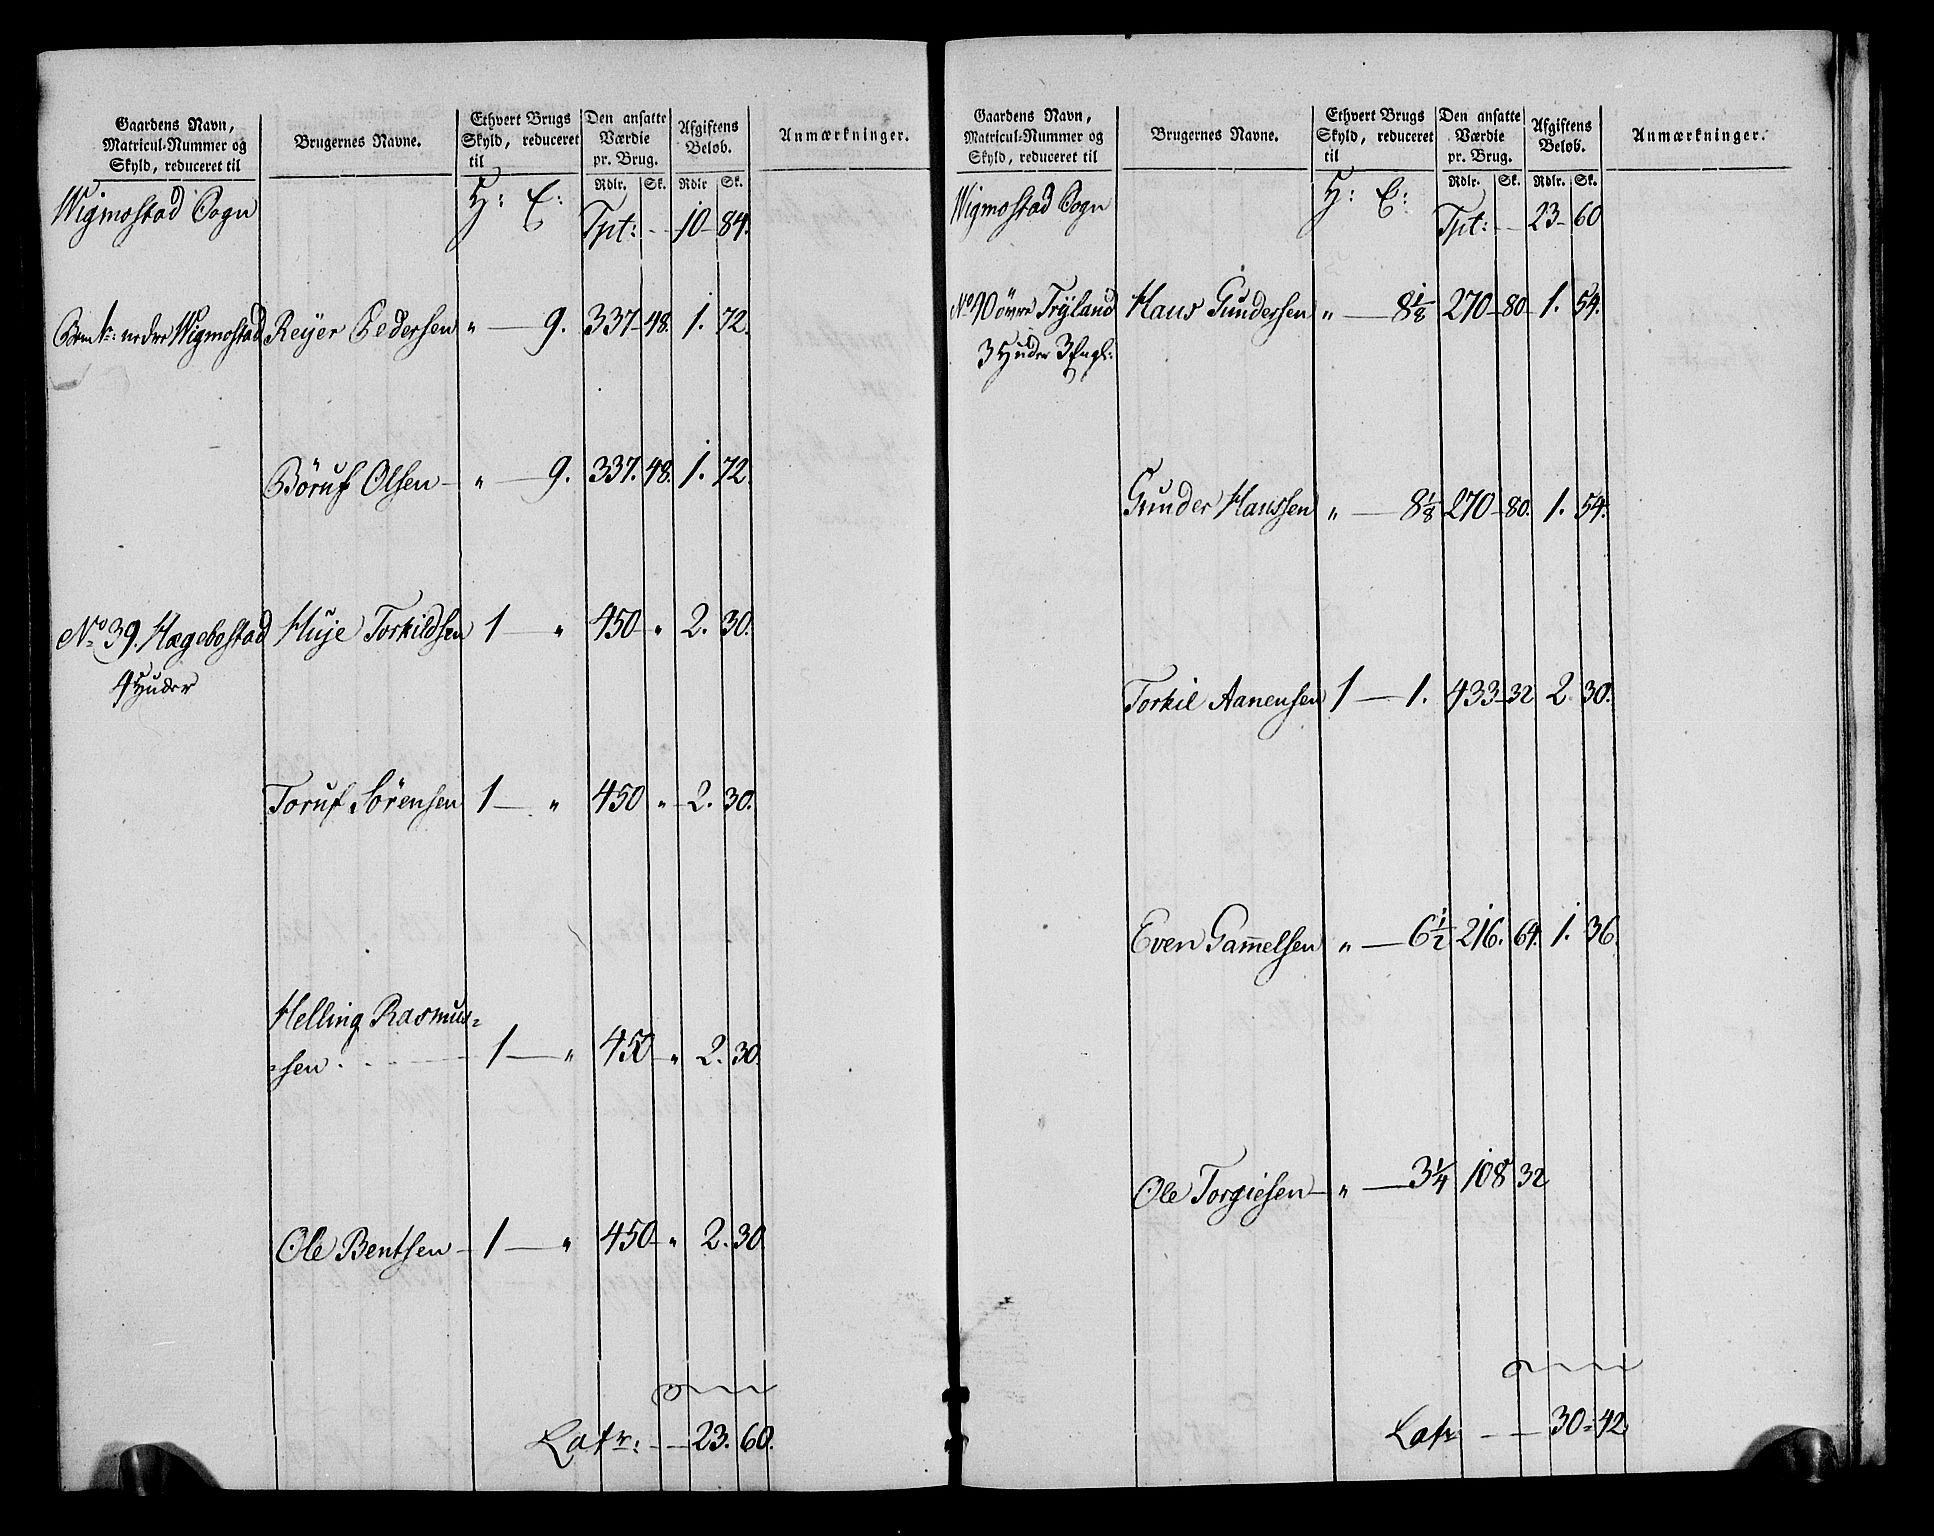 Gaardens Navn, Matricul-Nummer og Skyld, reduceret til | Brugernes Navne. | Ethvert Brugs Skyld, reduceret til | Den ansatte Værdie pr. Brug. | Afgiftens Beløb. | Anmærkninger.
Rdlr. Sk. Rdlr Sk.
Wigmostad Sogn H: E: Tpt: 10 84.
nedre Wigmostad Reyer Pedersen " 9. 337 48. 1. 72.
Böruf Olsen " 9. 337. 48. 1. 72
No 39. Hægebostad Huje Torkildsen 1 " 450 " 2. 30.
4 Huder
Toruf Sörensen 1 " 450 " 2. 30.
Helling Rasmus=
=sen 1 " 450 " 2. 30.
Ole Bentsen 1 " 450 " 2. 30
Latr: 23. 60.
Gaardens Navn, Matricul-Nummer og Skyld, reduceret til | Brugernes Navne. | Ethvert Brugs Skyld, reduceret til | Den ansatte Værdie pr. Brug. | Afgiftens Beløb. | Anmærkninger.
Rdlr. Sk. Rdlr. Sk.
Wigmostad Sogn H: E: Tpt: 23 60
No 40 övre Trÿland Hans Gundersen " 8 1/8 270 80 1. 54.
3 Huder 3 Engl:
Gunder Hanssen " 8 1/8 270 80. 1. 54.
Torkil Aanensen 1 1. 433 32 2 30.
Even Gam̄elsen " 6 1/2 216. 64. 1. 36.
Ole Torgiesen " 3 1/4 108 32
Latr 30 = 42